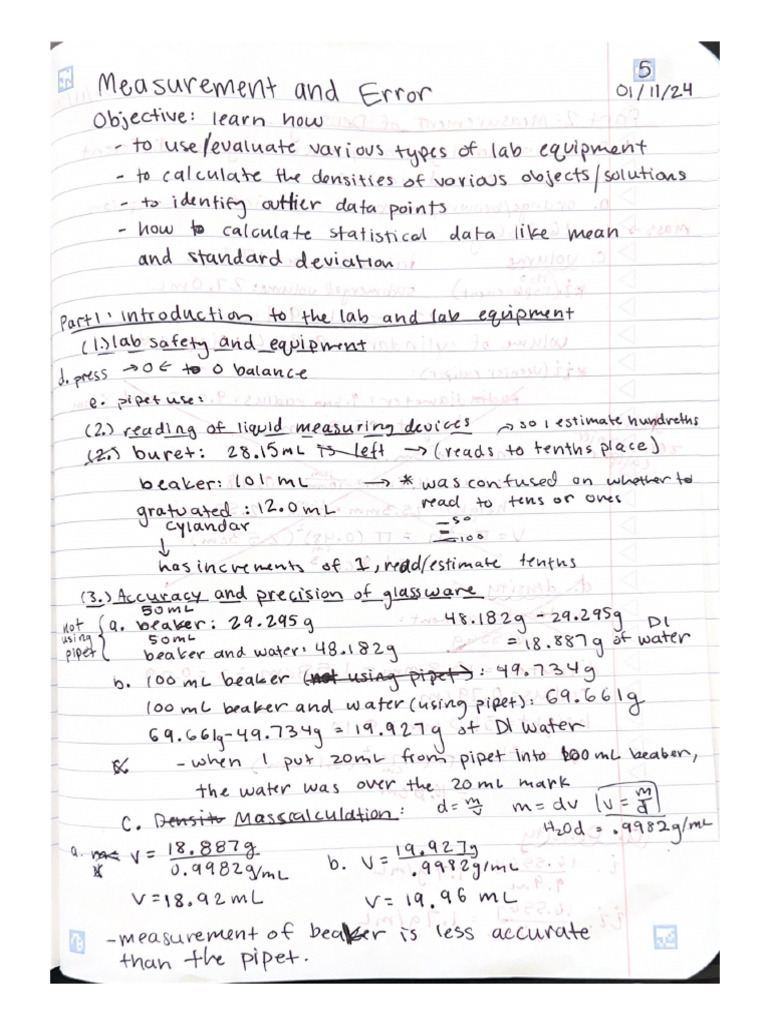 5
Measurement and Error
01/11/24
Objective: learn how
- to use/evaluate various types of lab equipment
- to calculate the densities of various objects/solutions
- to identify outlier data points
- how to calculate statistical data like mean
and standard deviation
Part 1: introduction to the lab and lab equipment
(1.) lab safety and equipment
d. press → 0 ← to 0 balance
e. pipet use:
(2.) reading of liquid measuring devices → so I estimate hundreths
(2.) buret: 28.15 mL is left → (reads to tenths place)
beaker: 101 mL → * was confused on whether to
read to tens or ones
gratuated: 12.0 mL
cylandar
50
100
↓
has increments of 1, read/estimate tenths
(3.) Accuracy and precision of glassware
not using pipet { a. 50 mL beaker: 29.295g
50 mL beaker and water: 48.182g
48.182g - 29.295g
= 18.887g of DI water
b. 100 mL beaker (not using pipet): 49.734g
100 mL beaker and water (using pipet): 69.661g
69.661g-49.734g = 19.927g of DI water
* - when I put 20mL from pipet into 100 mL beaker,
the water was over the 20 mL mark
C. Density Mass calculation: d = m/v m = dv v = m/d
H₂O d = .9982g/mL
a. V = 18.887g / 0.9982g/mL
V = 18.92 mL
b. V = 19.927g / .9982g/mL
V = 19.96 mL
- measurement of beaker is less accurate
than the pipet.